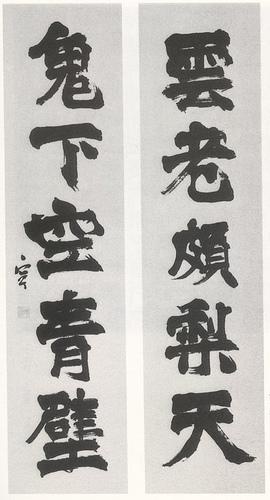 雲老頗梨天
鬼下空青壁